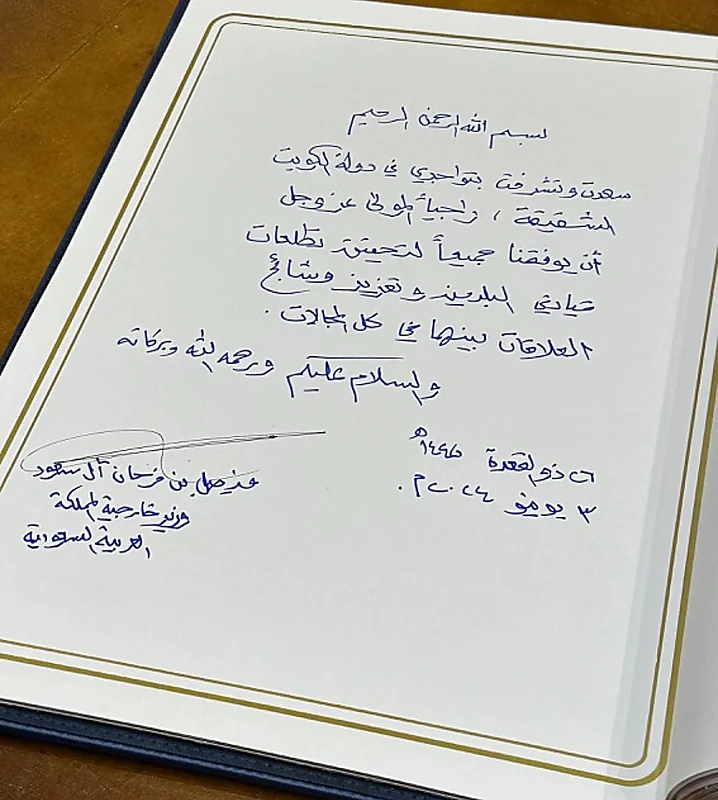 بسم الله الرحمن الرحيم
سعدت وتشرفت بتواجدي في دولة الكويت
الشقيقة ، راجياً المولى عز وجل
أن يوفقنا جميعاً لتحقيق تطلعات
قيادتي البلدين وتعزيز وشائج
العلاقات بينهما في كل المجالات .
والسلام عليكم ورحمة الله وبركاته
٢٦ ذو القعدة ١٤٤٥هـ
٣ يونيو ٢٠٢٤م .
فيصل بن فرحان آل سعود
وزير خارجية المملكة
العربية السعودية